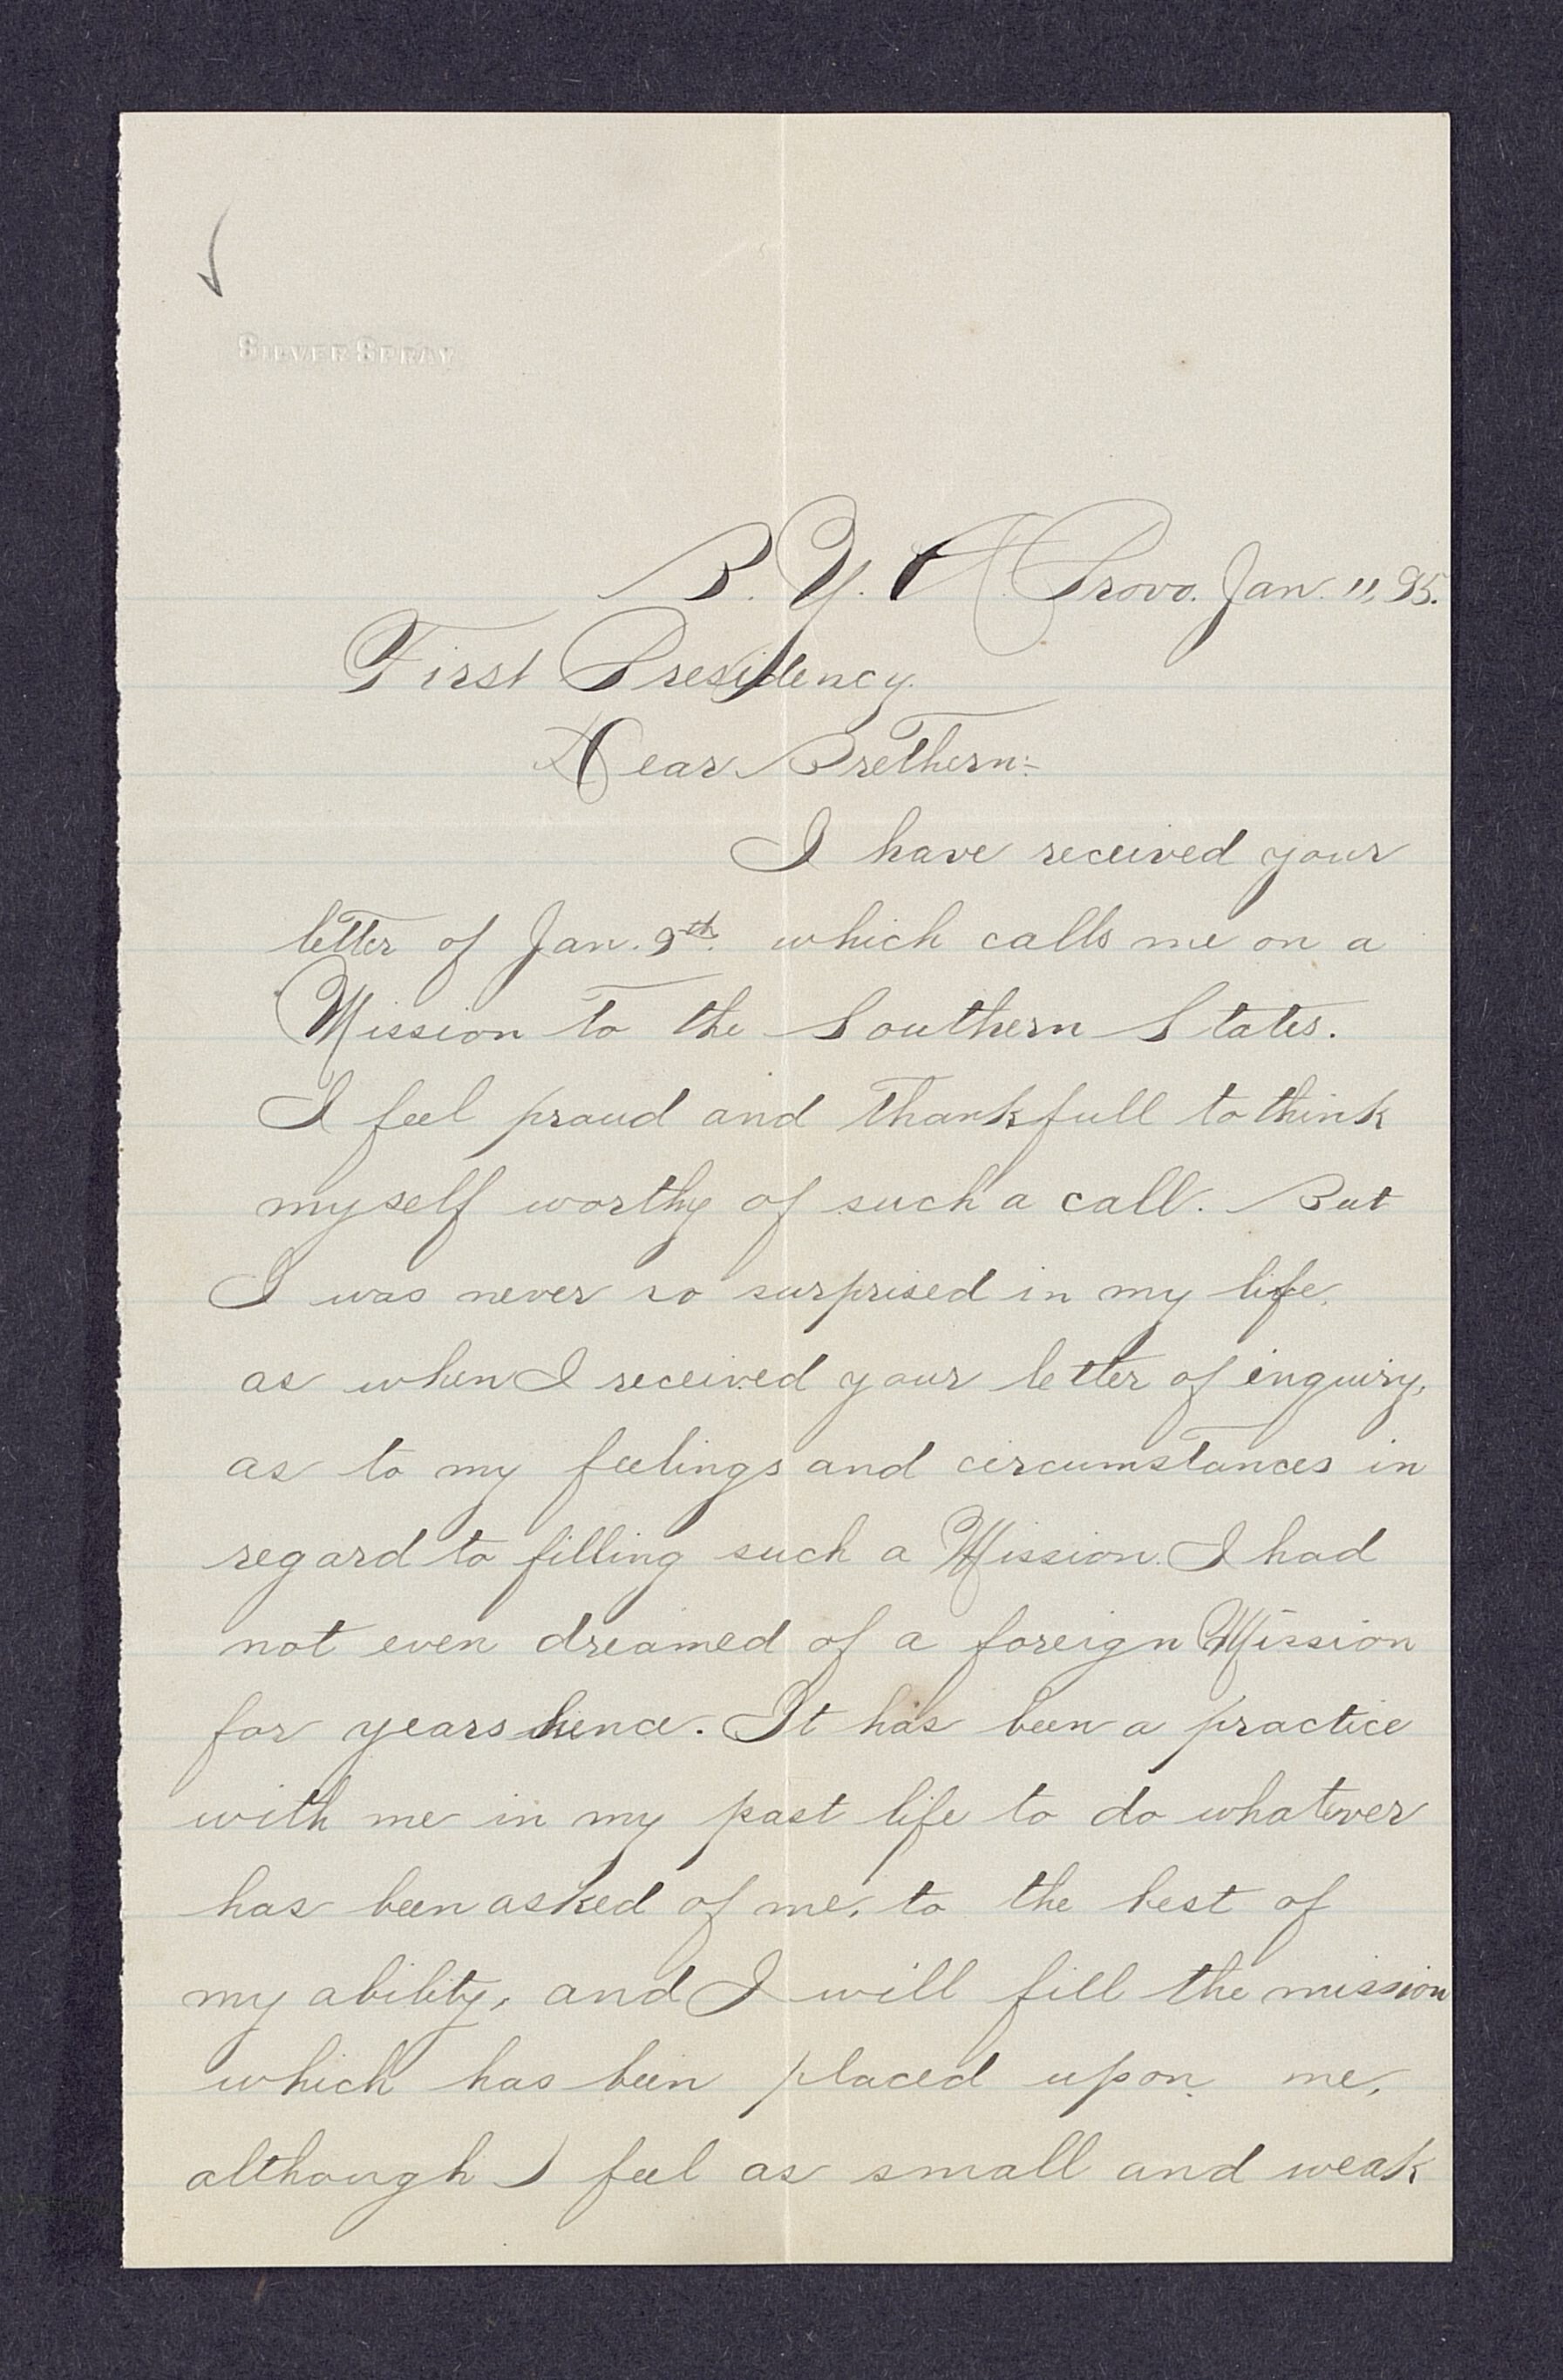 SILVER SPRAY
B. Y. A. Provo. Jan. 11, 95.
First Presidency.
Dear Brethern:-
I have received your
letter of Jan. 9th. which calls me on a
Mission to the Southern States.
I feel proud and thankfull to think
myself worthy of such a call. But
I was never so surprised in my life,
as when I received your letter of inquiry,
as to my feelings and circumstances in
regard to filling such a Mission. I had
not even dreamed of a foreign Mission
for years hence. It has been a practice
with me in my past life to do whatever
has been asked of me, to the best of
my ability, and I will fill the mission
which has been placed upon me,
although I feel as small and weak